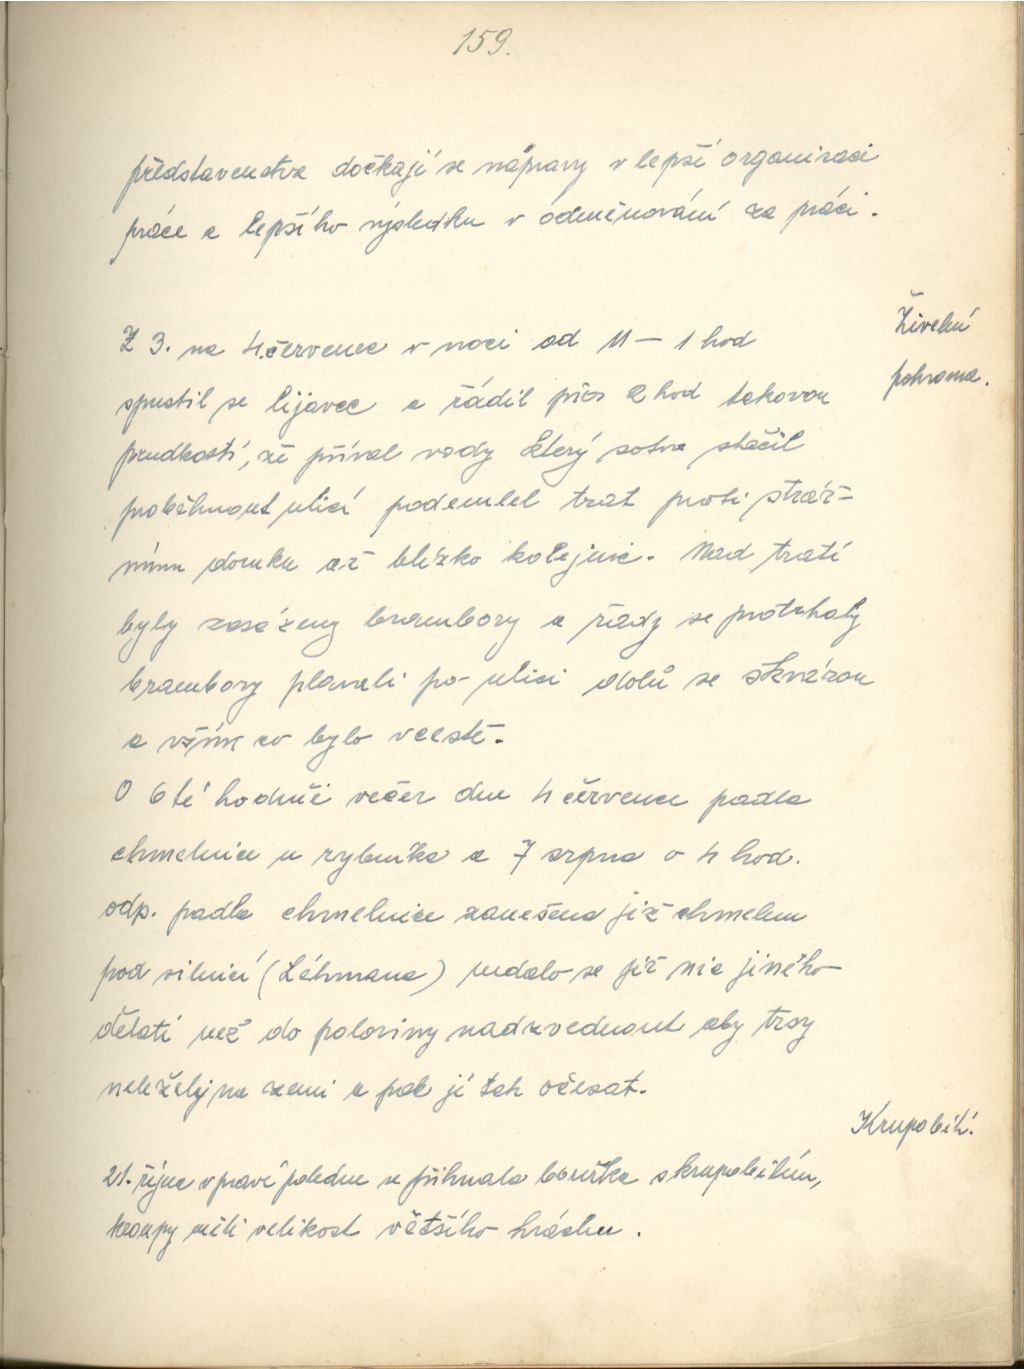 159.
představenstva dočkají se nápravy v lepší organisaci
práce a lepšího výsledku v odměňování za práci.
Živelní
pohroma.
Z 3. na 4. červenec v noci od 11 – 1 hod
spustil se lijavec a řádil přes 2 hod takovou
prudkostí, že příval vody který sotva stačil
proběhnout ulicí podemlel trat proti stráž-
nímu domku až blízko kolejnic. Nad tratí
byly zasázeny brambory a řády se protrhaly
brambory plavali po ulici dolů se škvárou
a vším co bylo vcestě.
O 6té hodině večer dne 4 července padla
chmelnice u rybníka a 7 srpna o 4 hod.
odp. padla chmelnice zanešena již chmelem
pod silnicí (Léhmana) nedalo se již nic jiného
dělati než do poloviny nadzvednout aby trsy
neležely na zemi a pak jí tak očesat.
Krupobití.
21. října v pravé poledne se přihnala bouřka s krupobitím,
kroupy měli velikost většího hráchu.